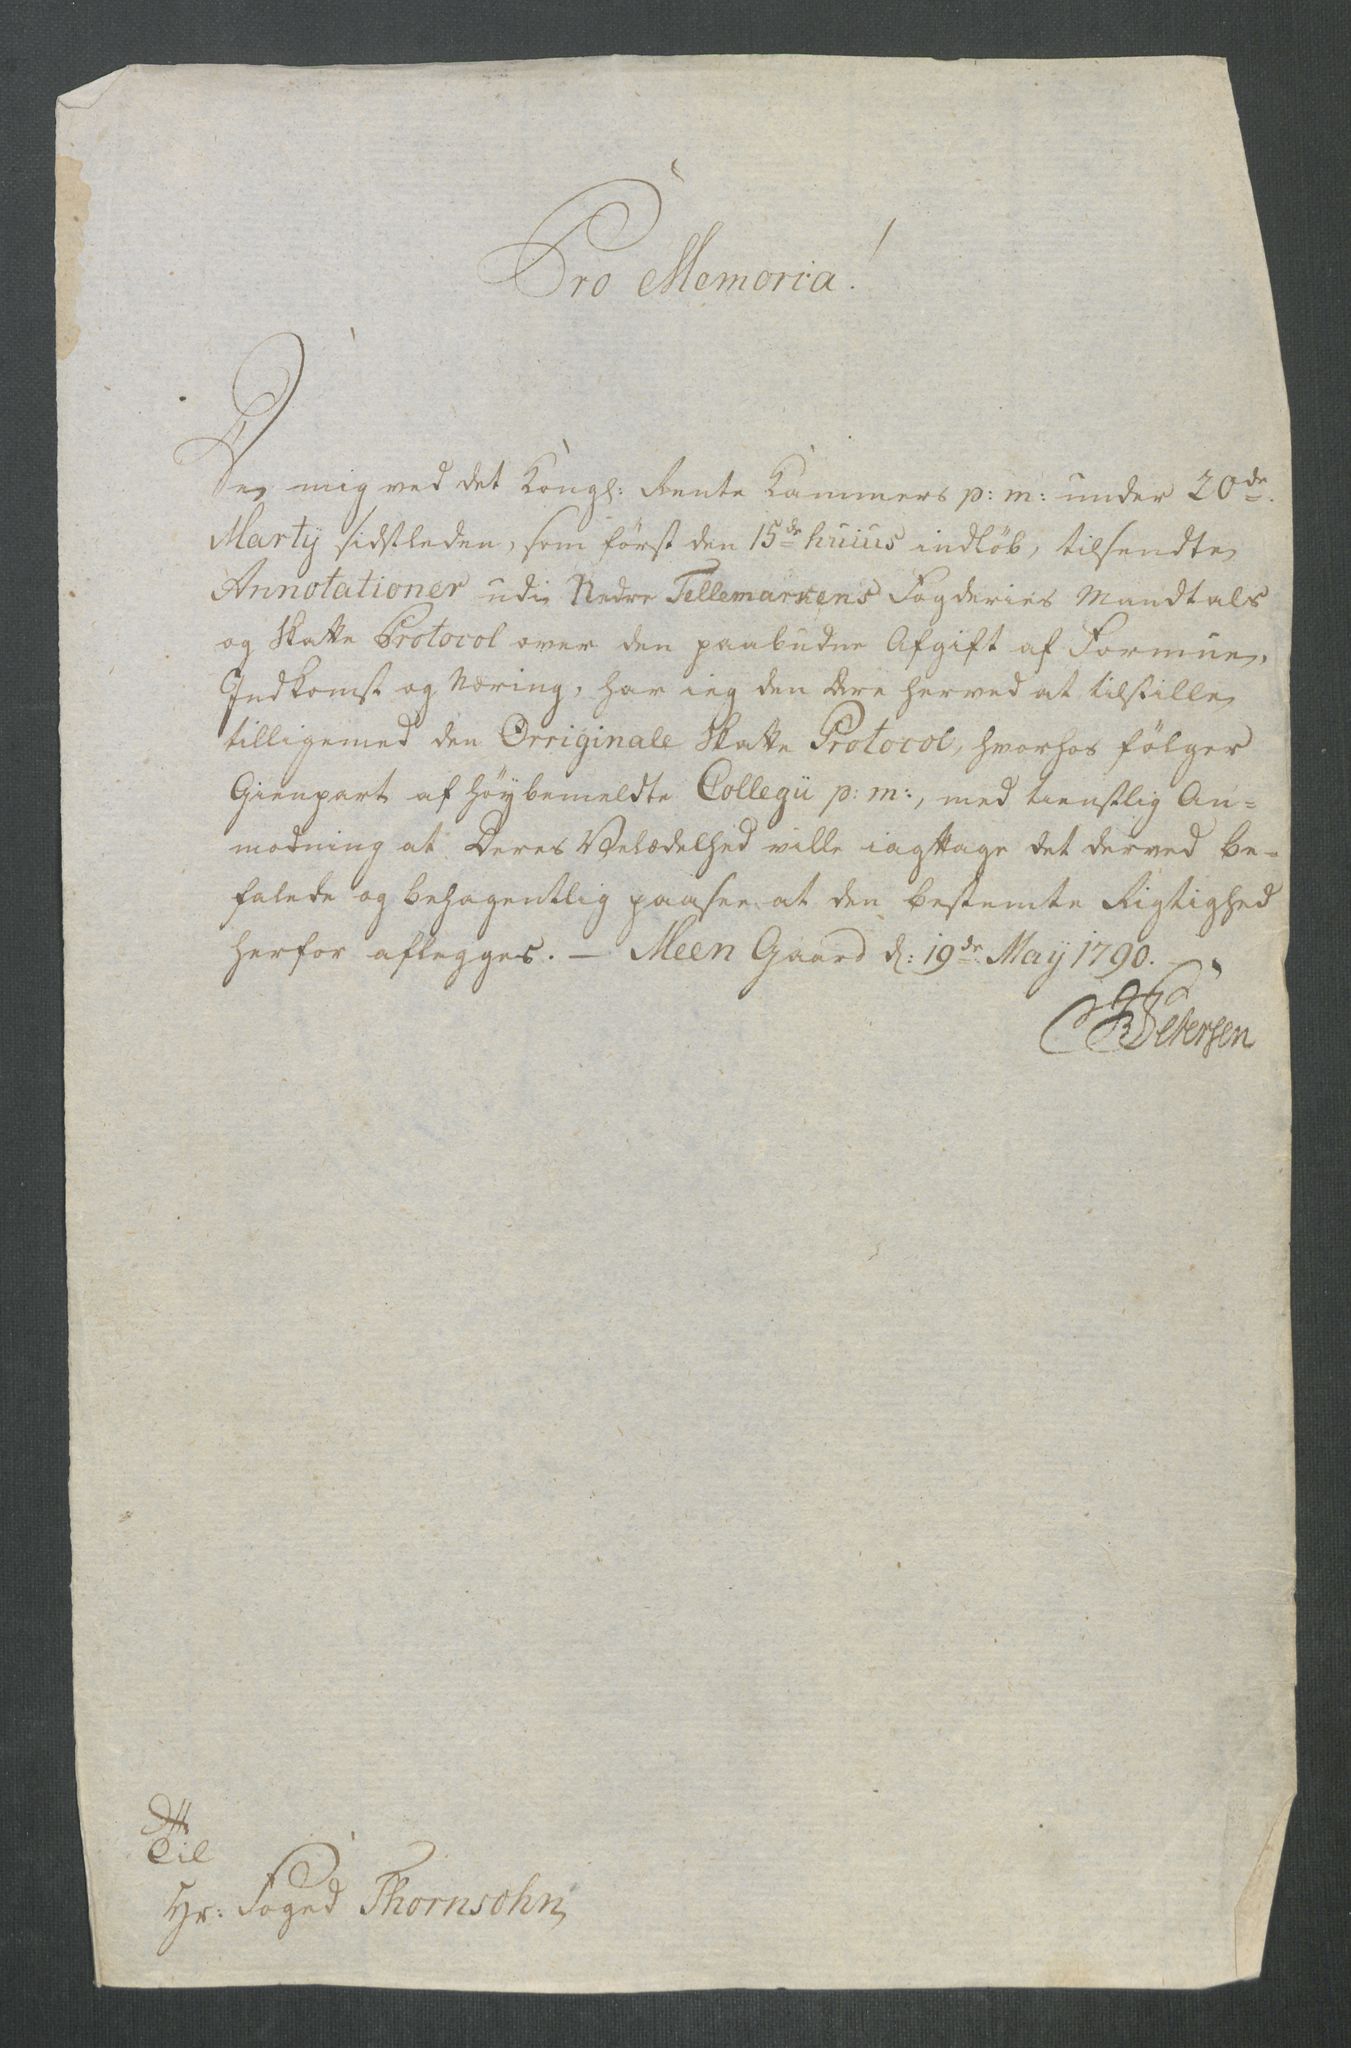 Pro Memoria!
De mig ved det Kongl: Rente Kammers p: m: under 20de
Martij sidstleden, som först den 15de huius indlöb, tilsendte
Annotationer udi Nedre Tellemarkens Fogderies Mandtals
og Skatte Protocol over den paabudne Afgift af Formue,
Indkomst og Næring, har ieg den Ære herved at tilstille
tilligemed den Orriginale Skatte Protocol, hvorhos fölger
Gienpart af höybemeldte Collegii p: m:, med tienstlig An-
modning at Deres Velædelhed ville iagttage det derved be-
falede og behagentlig paasee at den bestemte Rigtighed
herfor aflegges. — Meen Gaard d: 19de May 1790.
Petersen
Til
Hr: Foged Thornsohn